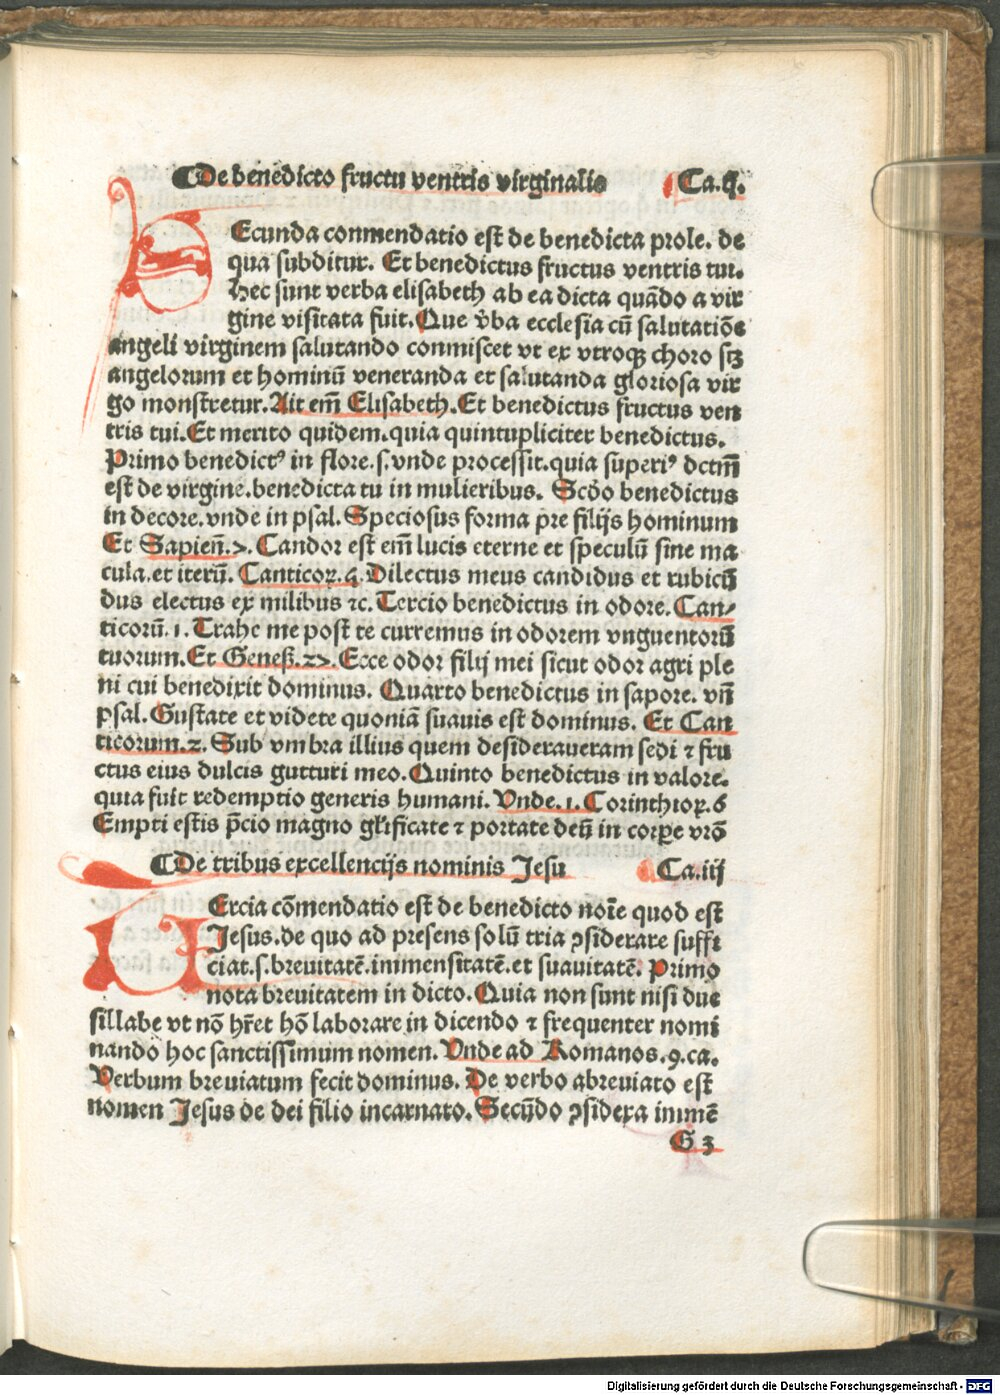 De benedicto fructu ventris virginalis Ca.ij.
SEcunda conmendatio est de benedicta prole. de
qua subditur. Et benedictus fructus ventris tui.
Hec sunt verba elisabeth ab ea dicta quādo a vir
gine visitata fuit. Que v̄ba ecclesia cū salutatiōe
angeli virginem salutando conmiscet vt ex vtroqꝫ choro sꝫ
angelorum et hominū veneranda et salutanda gloriosa vir
go monstretur. Ait em̄ Elisabeth. Et benedictus fructus ven
tris tui. Et merito quidem. quia quintupliciter benedictus.
Primo benedictꝰ in flore. s. vnde processit. quia superiꝰ dctm̄
est de virgine. benedicta tu in mulieribus. Scd̄o benedictus
in decore. vnde in psal. Speciosus forma pre filijs hominum
Et Sapien̄. 7. Candor est em̄ lucis eterne et speculū sine ma
cula. et iterū. Canticoꝝ. 4. Dilectus meus candidus et rubicū
dus electus ex milibus ⁊c. Tercio benedictus in odore. Can/
ticorū. 1. Trahe me post te curremus in odorem vnguentorū
tuorum. Et Geneß. 27. Ecce odor filij mei sicut odor agri ple
ni cui benedixit dominus. Quarto benedictus in sapore. vn̄
psal. Gustate et videte quoniā suauis est dominus. Et Can
ticorum. 2. Sub vmbra illius quem desideraueram sedi ⁊ fru
ctus eius dulcis gutturi meo. Quinto benedictus in valore.
quia fuit redemptio generis humani. Vnde. 1. Corinthioꝝ. 6
Empti estis p̄cio magno gl̄ificate ⁊ portate deū in corꝑe vr̄o
De tribus excellencijs nominis Jesu Ca.iij
TErcia cōmendatio est de benedicto noīe quod est
Jesus. de quo ad presens solū tria ꝯsiderare suffi
ciat. s. breuitatē. immensitatē. et suauitatē. Primo
nota breuitatem in dicto. Quia non sunt nisi due
sillabe vt nō hr̄et hō laborare in dicendo ⁊ frequenter nomi
nando hoc sanctissimum nomen. Vnde ad Romanos. 9. ca.
Verbum breuiatum fecit dominus. De verbo abreuiato est
nomen Jesus de dei filio incarnato. Secūdo ꝯsidera immē
G 3
Digitalisierung gefördert durch die Deutsche Forschungsgemeinschaft - DFG